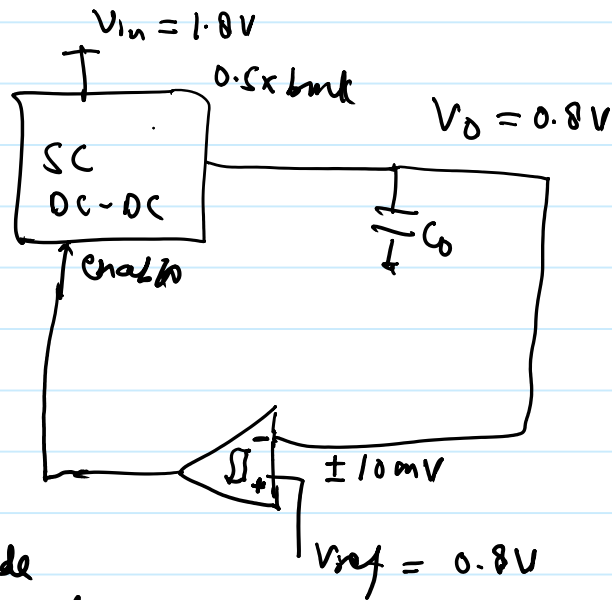 Vin = 1.8V
0.5x buck
V0 = 0.8V
SC
DC-DC
C0
enable
± 10mV
Vref = 0.8V